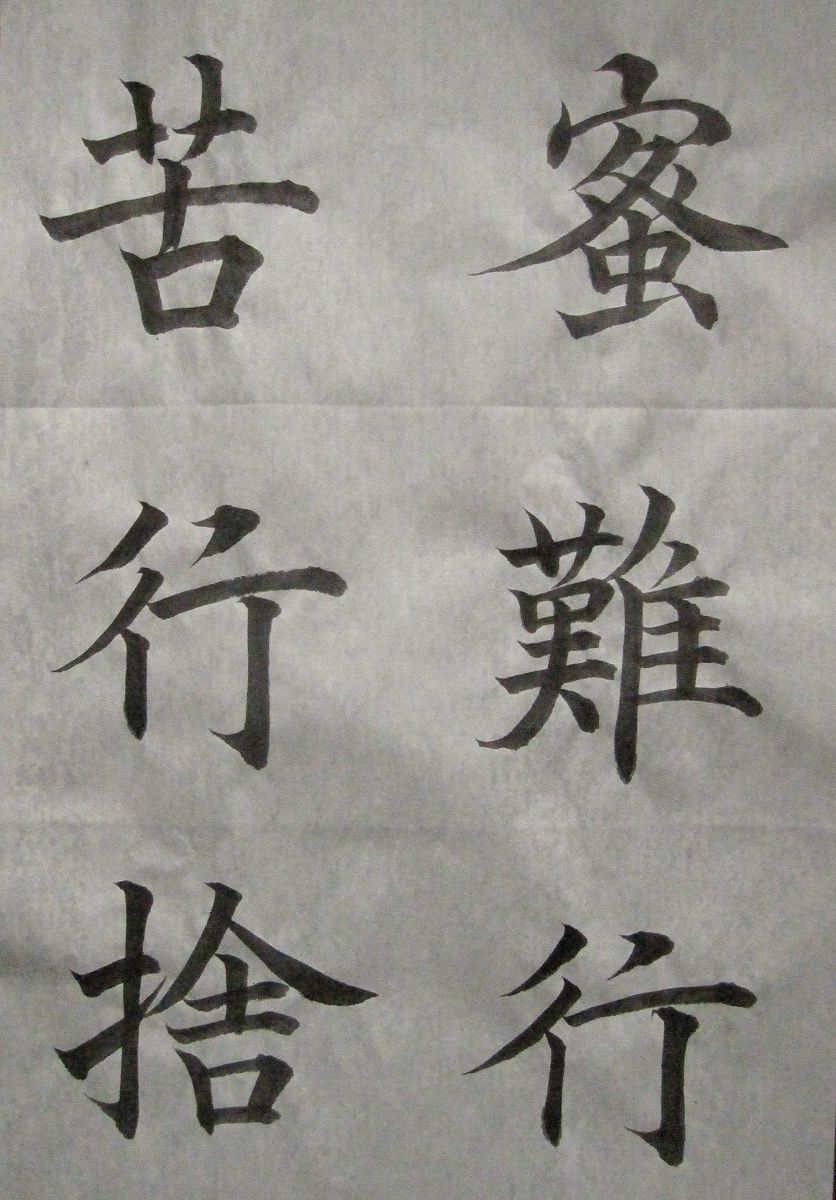 蜜難行
苦行捨